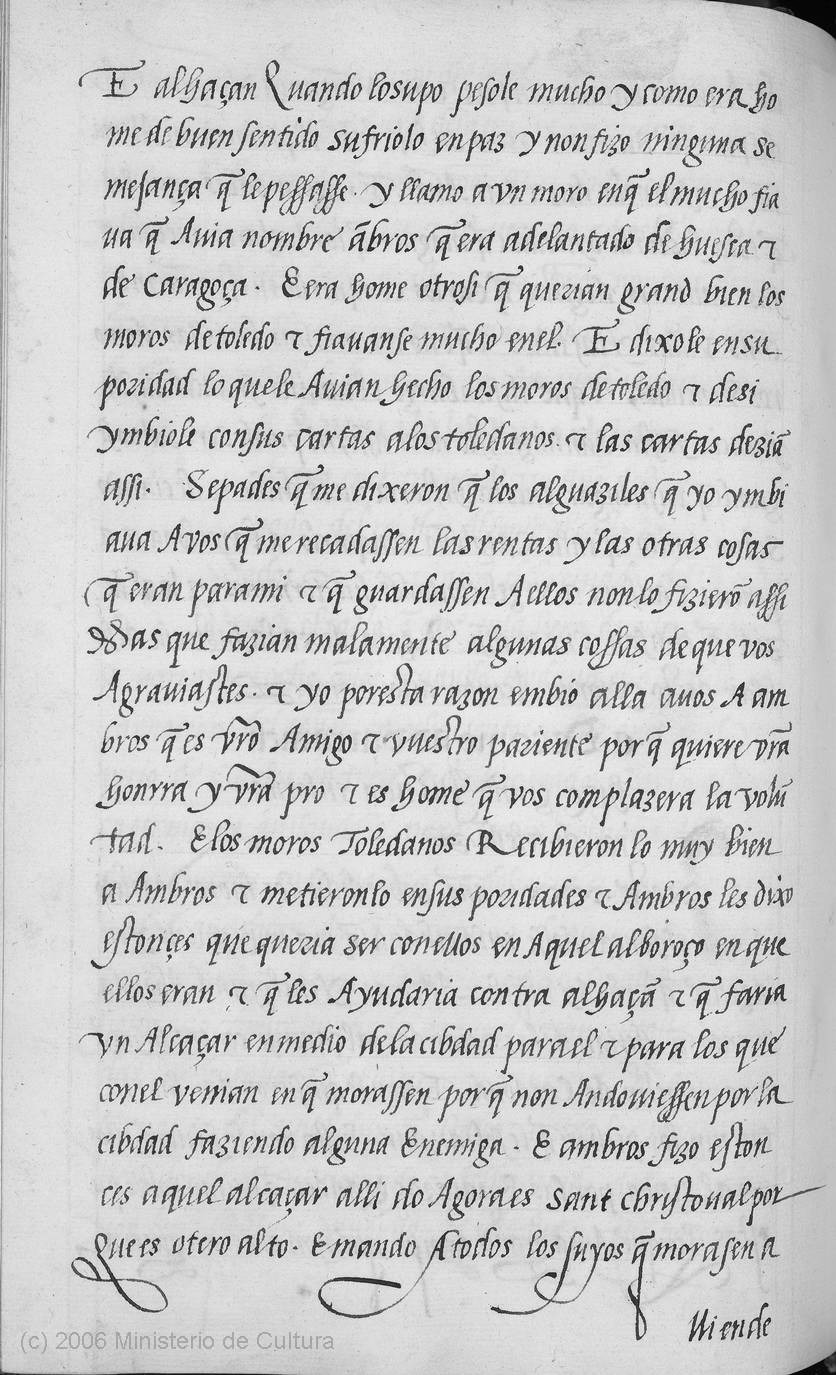 E alhaçan Quando losupo pesole mucho y como era ho
me de buen sentido sufriolo en paz y non fizo ninguna se
mejança q̃ le pessasse. y llamo a vn moro enq̃ el mucho fia
ua q̃ Auia nombre ãbros q̃ era adelantado de huesca τ
de Caragoça. E era home otrosi q̃ querian grand bien los
moros de toledo τ fiauanse mucho enel. E dixole en su
poridad lo que le Auian hecho los moros de toledo τ desi
ymbiole con sus cartas a los toledanos. τ las cartas deziã
assi. Sepades q̃ me dixeron q̃ los alguaziles q̃ yo ymbi
aua A vos q̃ me recadassen las rentas y las otras cosas
q̃ eran para mi τ q̃ guardassen A ellos non lo fizierõ assi
Mas que fazian malamente algunas cossas de que vos
Agraviastes. τ yo por esta razon embio alla a uos A am
bros q̃ es vr̃o Amigo τ vuestro pariente por q̃ quiere vr̃a
honrra y vr̃a pro τ es home q̃ vos complazera la volũ
tad. E los moros Toledanos Recibieron lo muy bien
a Ambros τ metieronlo en sus poridades τ Ambros les dixo
estonçes que queria ser con ellos en Aquel alboroço en que
ellos eran τ q̃ les Ayudaria contra alhaçã τ q̃ faria
vn Alcaçar en medio de la cibdad para el τ para los que
con el venian en q̃ morassen por q̃ non Andouiessen por la
cibdad faziendo alguna Enemiga. E ambros fizo eston
ces aquel alcaçar alli do Agora es sant christoual por
que es otero alto. E mando A todos los suyos q̃ morasen a
lli ende
(c) 2006 Ministerio de Cultura